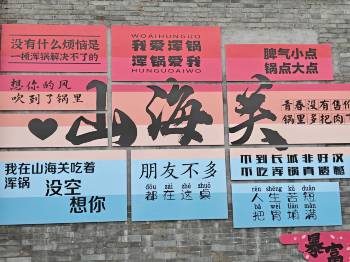 没有什么烦恼是
一顿浑锅解决不了的
WOAIHUNGUO
我爱浑锅
浑锅爱我
HUNGUOAIWO
脾气小点
锅点大点
想你的风
吹到了锅里
山海关
青春没有售价
锅里多把肉
我在山海关吃着
浑锅
没空
想你
朋友不多
dōu zài zhè zhuō
都在这桌
不到长城非好汉
不吃浑锅真遗憾
rén shēng kǔ duǎn
人生苦短
bǎ wèi tián mǎn
把胃填满
暴富